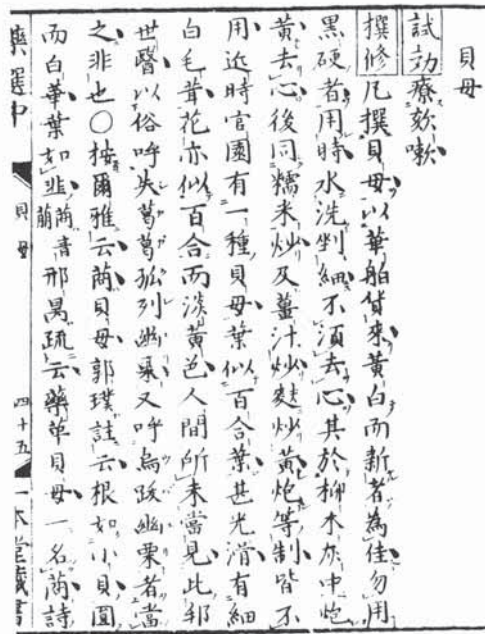 貝母
試効療欬嗽
撰修凡撰貝母以華舶貨來黃白而新者為佳勿用
黑硬者用時水洗剉細不須去心其於柳木灰中炮
黃去心後同糯米炒及薑汁炒麩炒黃炮等制皆不
用近時官園有一種貝母葉似百合葉甚光滑有細
白毛茸花亦似百合而淡黃色人間所未嘗見此邦
世醫以俗呼失葛葛孤列幽泉又呼烏跋幽栗者當
之非也〇按爾雅云莔貝母郭璞註云根如小貝圓
而白華葉如韭莔音萌邢昺疏云藥草貝母一名莔詩
貝母
四十五
一本堂藏書